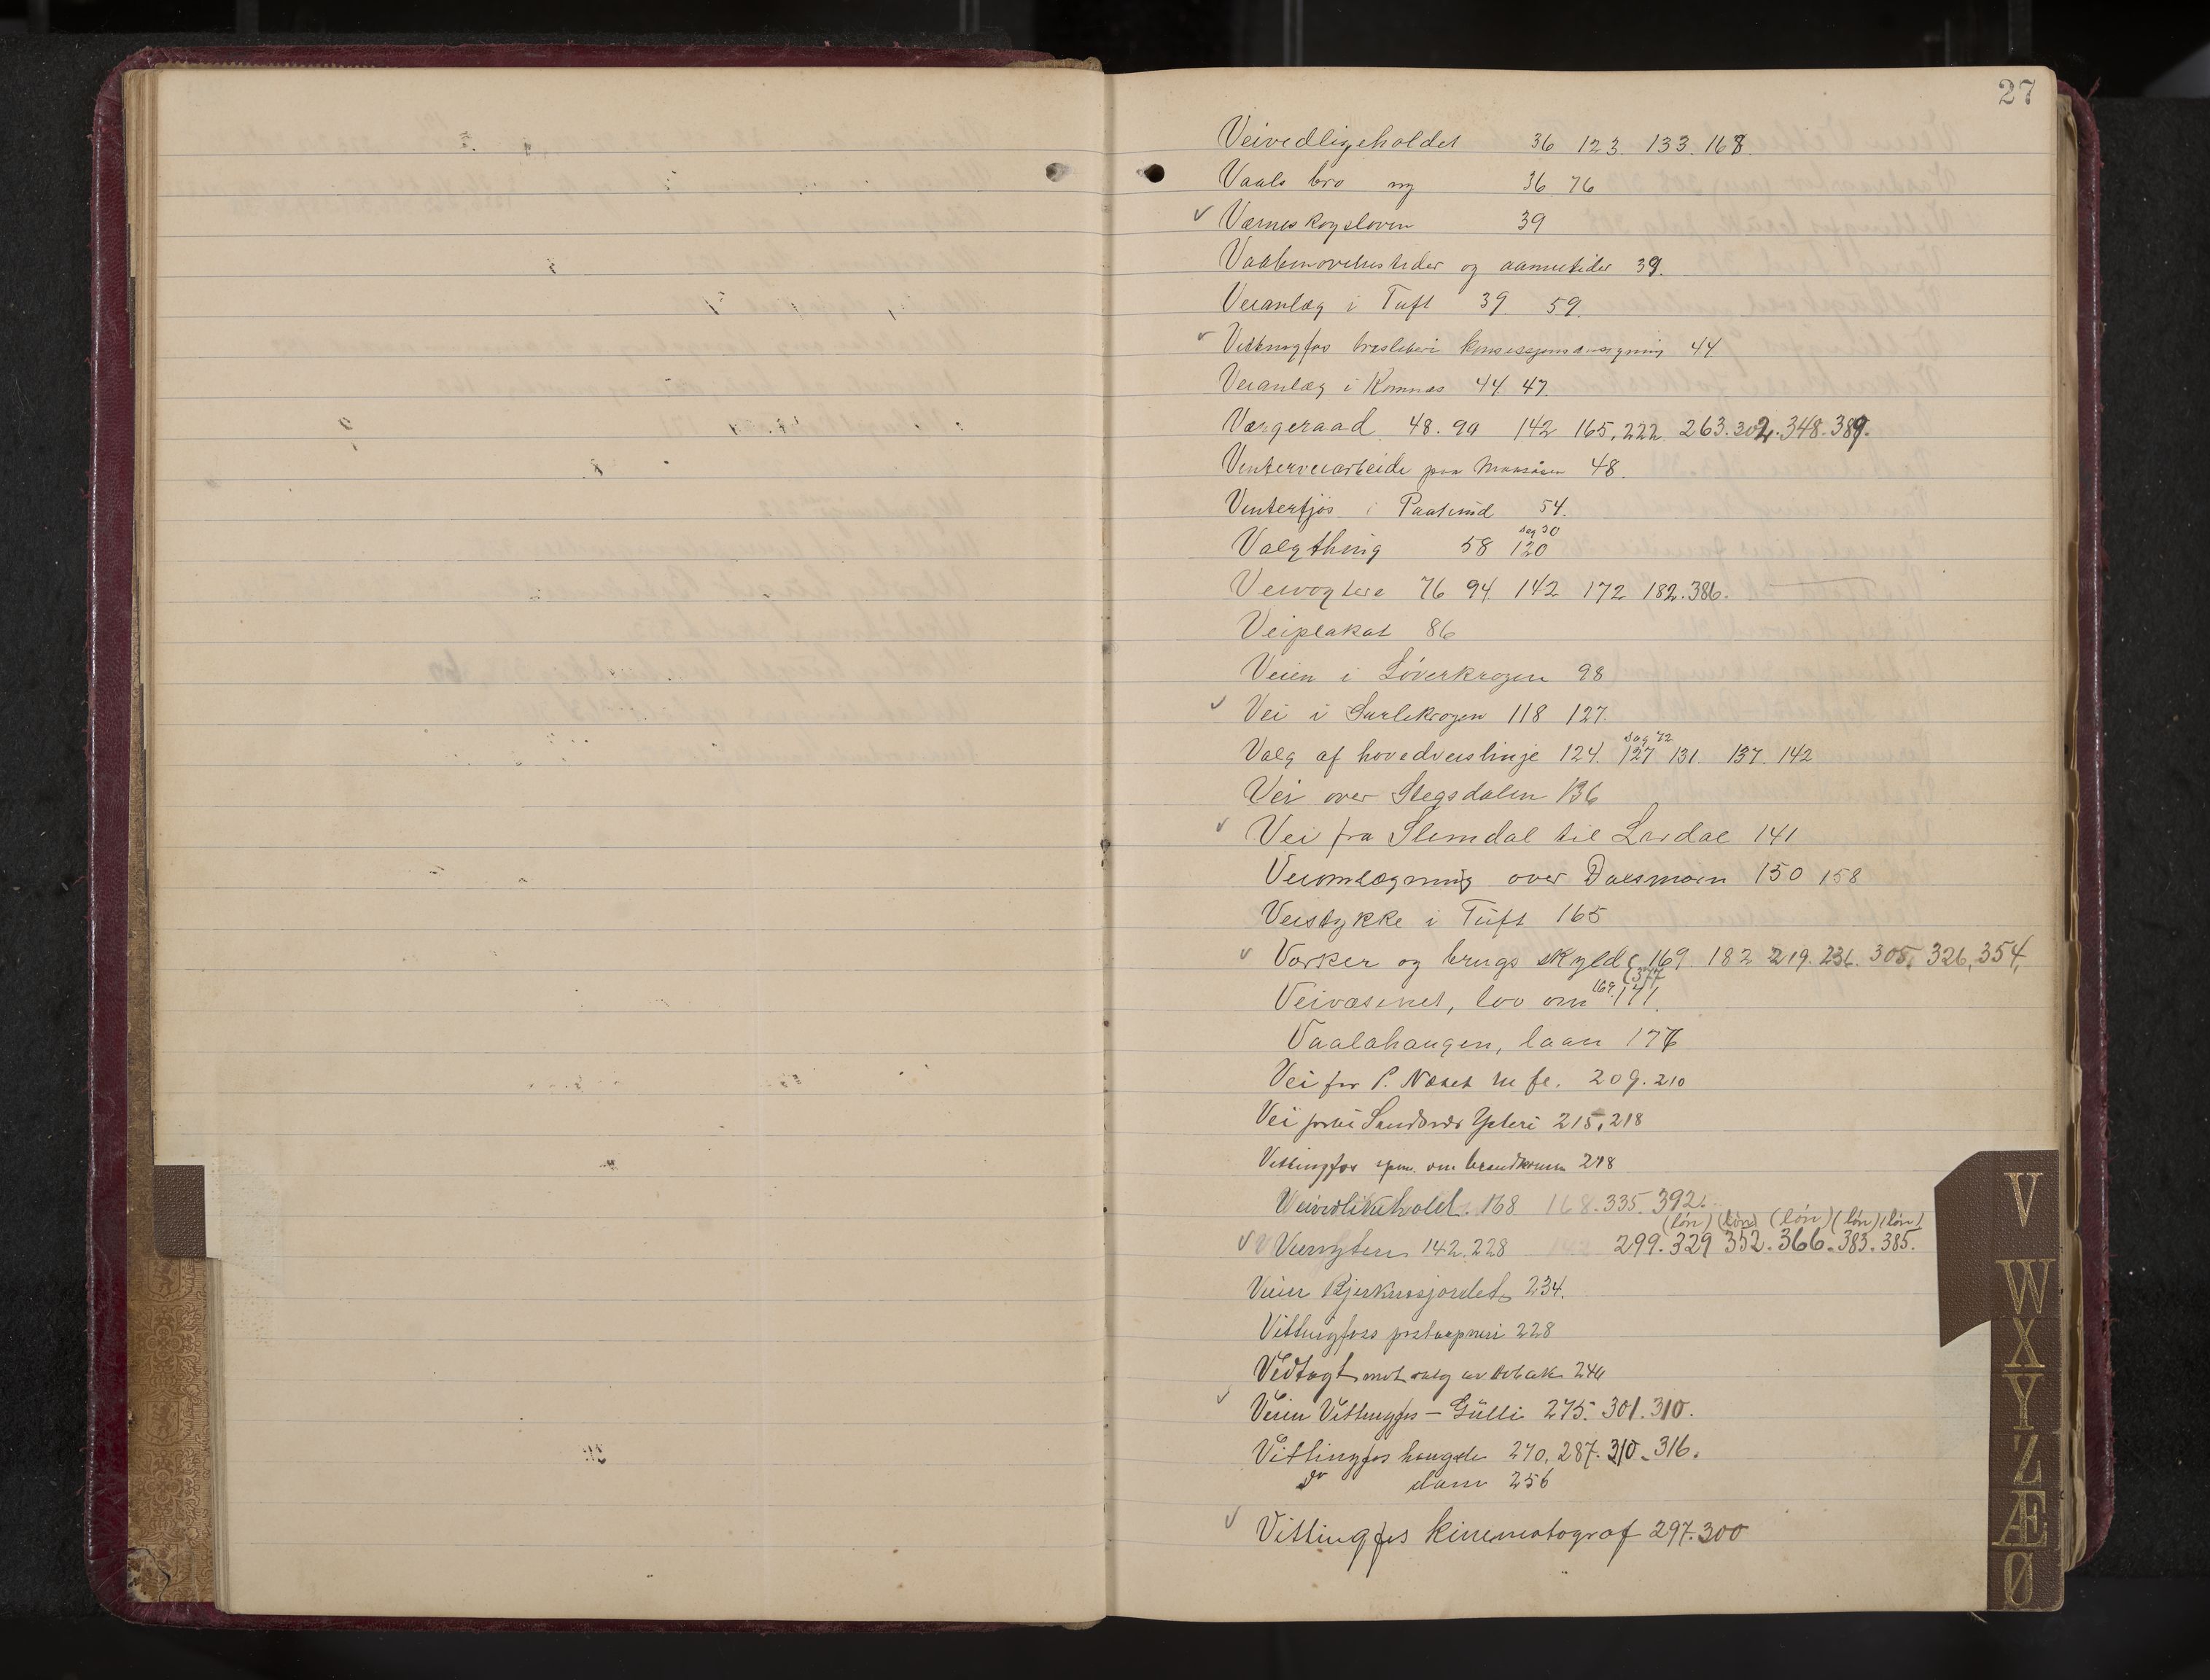 27
Veivedligeholdet 36 123. 133. 168.
Vaals bro ny 36 76
✓ Værneskogsloven 39
og 39.
Veianlæg i Tuft 39 59.
✓ Vittingfos træsliberi 44
Veianlæg i Komnæs 44. 47.
Værgeraad 48. 94 142 165, 222. 263. 302. 348. 389.
Vinterveiarbeide paa 48.
Vinterfjøs i Paasund 54.
sag 30
Valgthing 58 120
Veivogtere 76 94 142 172 182. 386.
Veiplakat 86
Veien i Løverkrogen 98
✓ Vei i 118 127.
sag 72
Valg af hovedveislinje 124. 127 131. 137. 142
Vei over Stegsdalen 136
✓ Vei fra Slemdal til Lardal 141
Veiomlægning over 150 158
Veistykke i Tuft 165
✓ Verker og brugs skyld 169. 182 219. 236. 305. 326, 354,
(377
Veivæsenet, lov om 169. 171.
Vaalahaugen, laan
Vei for P. Næset m fl. 209. 210
Vei 215, 218
Vittingfos om
Veivedlikehold. 168 168. 335. 392.
(løn) (løn) (løn) (løn) (løn)
✓ Veivogtere 142. 228 142 299. 329 352. 366. 383. 385.
Veien 234.
Vittingfoss postaapneri 228
Vedtægt mot salg av tobak
✓ Veien Vittingfos – Gülli 275. 301. 310.
Vittingfos 270. 287. 310. 316.
do dam 256
✓ Vittingfos kinematograf 297. 300
V
W
X
Y
Z
Æ
Ø